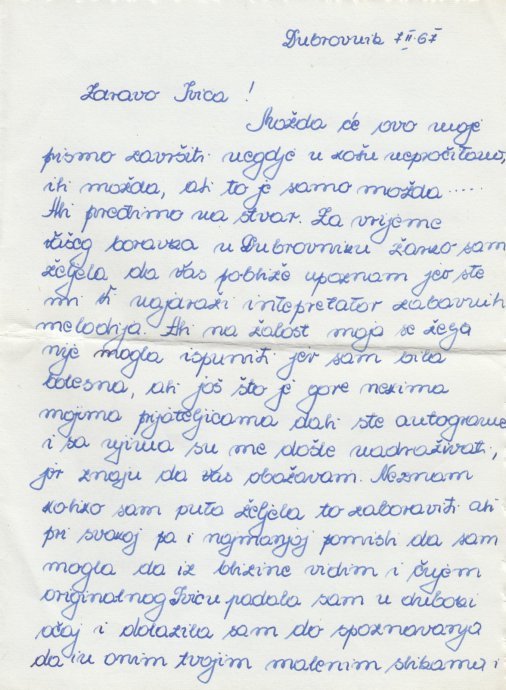 Dubrovnik 7.II.67
Zdravo Ivica!
Možda će ovo moje
pismo završiti negdje u košu nepročitano,
ili možda, ali to je samo možda .....
Ali pređimo na stvar. Za vrijeme
Vašeg boravka u Dubrovniku žarko sam
željela da Vas pobliže upoznam jer ste
mi Vi najdraži intepretator zabavnih
melodija. Ali na žalost moja se želja
nije mogla ispuniti jer sam bila
bolesna, ali još što je gore nekima
mojima prijateljicama dali ste autograme
i sa njima su me došle nadraživati,
jer znaju da Vas obožavam. Neznam
koliko sam puta željela to zaboraviti ali
pri svakoj pa i najmanjoj pomisli da sam
mogla da iz blizine vidim i čujem
originalnog Ivicu padala sam u duboki
očaj i dolazila sam do spoznavanja
da iz onim tvojim malenim slikama i